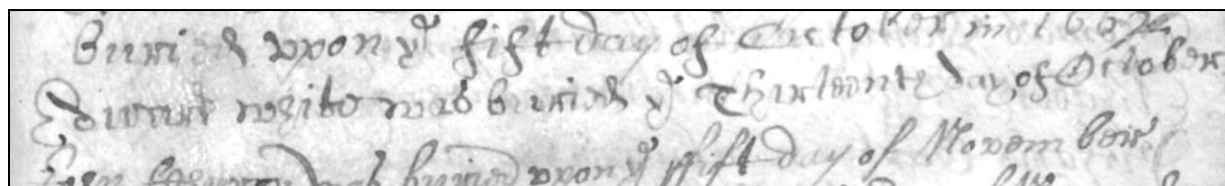 buried vpon ye fift day of October in 166
white was buried ye Thirteenth day of October
was buried vpon ye ffift day of November